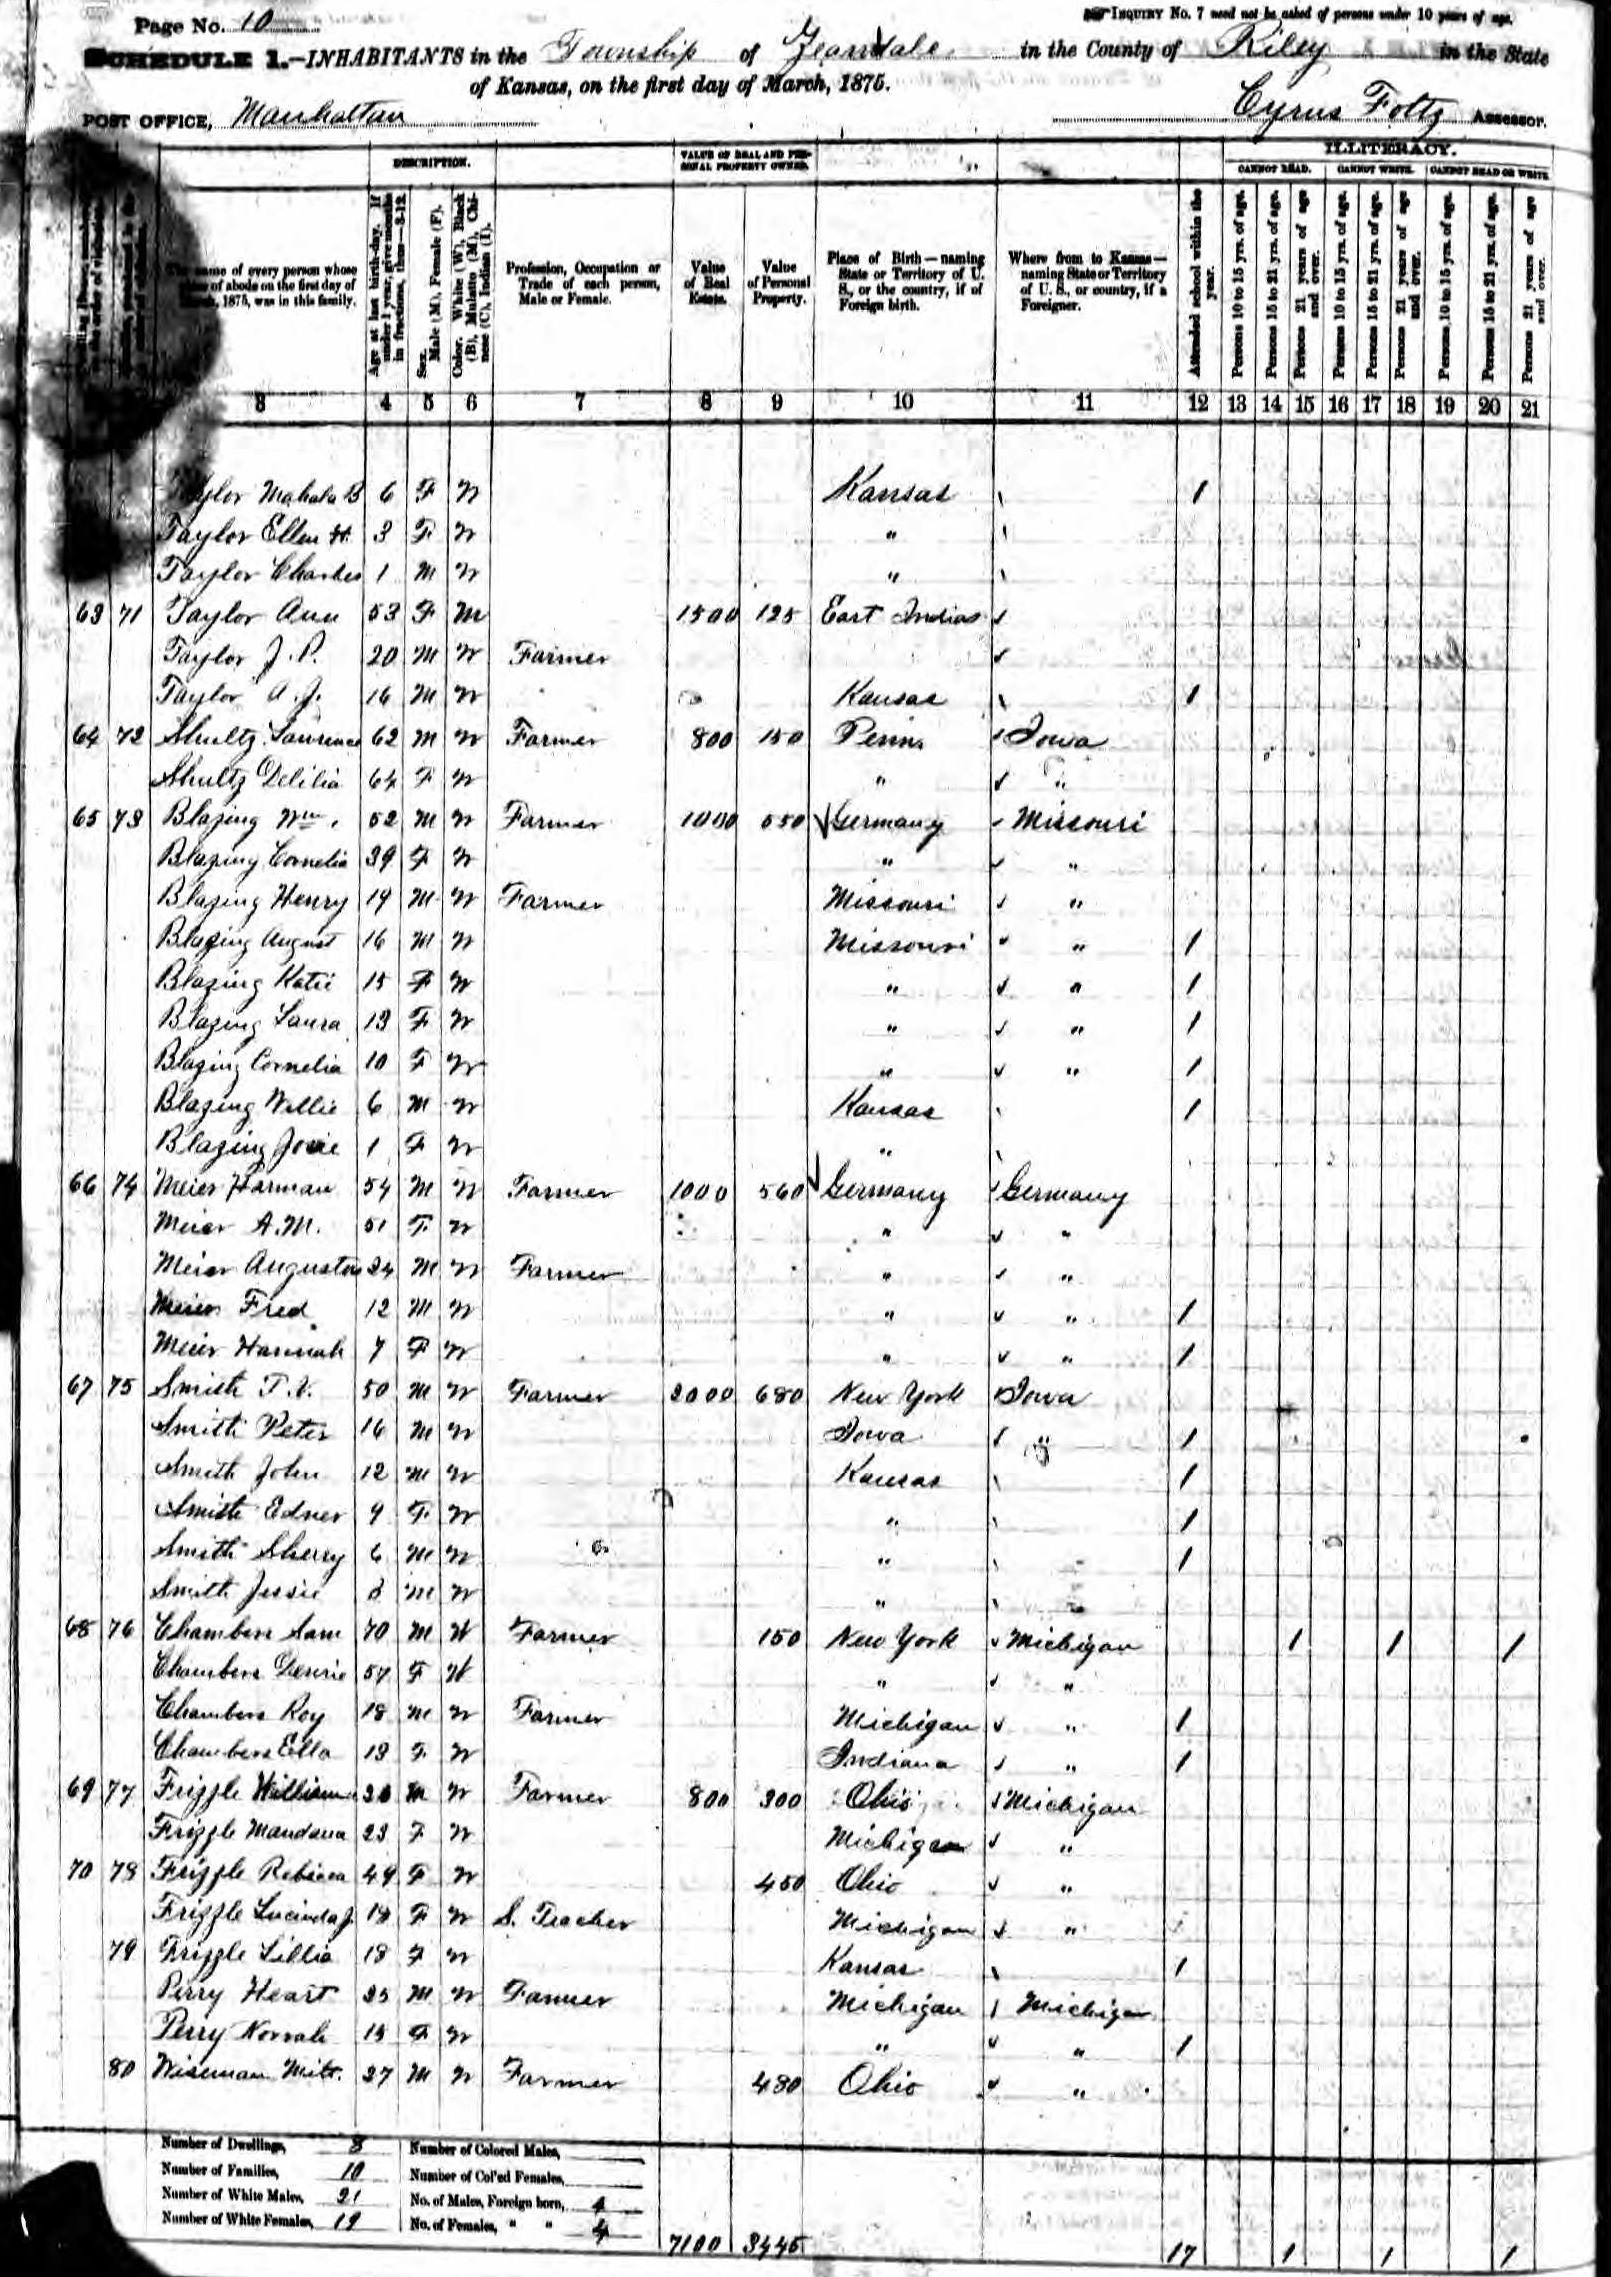 Page No. 10
INQUIRY No. 7 need not be asked of persons under 10 years of age.
SCHEDULE 1.—INHABITANTS in the Township of Zeandale in the County of Riley in the State
of Kansas, on the first day of March, 1875.
POST OFFICE, Manhattan Cyrus Foltz Assessor.
DESCRIPTION. VALUE OF REAL AND PERSONAL PROPERTY OWNED. ILLITERACY.
CANNOT READ. CANNOT WRITE. CANNOT READ OR WRITE
name of every person whose place of abode on the first day of March, 1875, was in this family.
Age at last birth-day. If under 1 year, give months in fractions, thus—3-12.
Sex. Male (M), Female (F).
Color. White (W), Black (B), Mulatto (M), Chinese (C), Indian (I).
Profession, Occupation or Trade of each person, Male or Female.
Value of Real Estate.
Value of Personal Property.
Place of Birth—naming State or Territory of U. S., or the country, if of Foreign birth.
Where from to Kansas—naming State or Territory of U. S., or country, if a Foreigner.
Attended school within the year.
Persons 10 to 15 yrs. of age.
Persons 15 to 21 yrs. of age.
Persons 21 years of age and over.
Persons 10 to 15 yrs. of age.
Persons 15 to 21 yrs. of age.
Persons 21 years of age and over.
Persons 10 to 15 yrs. of age.
Persons 15 to 21 yrs. of age.
Persons 21 years of age and over.
3 4 5 6 7 8 9 10 11 12 13 14 15 16 17 18 19 20 21
Taylor Mahala B 6 F W Kansas 1
Taylor Ellen H. 3 F W "
Taylor Charles 1 M W "
63 71 Taylor Ann 53 F M 1500 125 East Indias
Taylor J. P. 20 M W Farmer
Taylor A. J. 16 M W Kansas 1
64 72 Shultz Lawrence 62 M W Farmer 800 150 Penns Iowa
Shultz Delilia 64 F W " "
65 73 Blazing Wm. 52 M W Farmer 1000 550 Germany Missouri
Blazing Cornelia 39 F W " "
Blazing Henry 19 M W Farmer Missouri "
Blazing August 16 M W Missouri " 1
Blazing Katie 15 F W " " 1
Blazing Laura 13 F W " " 1
Blazing Cornelia 10 F W " " 1
Blazing Willie 6 M W Kansas 1
Blazing Josie 1 F W "
66 74 Meier Harman 54 M W Farmer 1000 560 Germany Germany
Meier A. M. 51 F W " "
Meier Augustus 24 M W Farmer " "
Meier Fred 12 M W " " 1
Meier Hannah 7 F W " " 1
67 75 Smith T. V. 50 M W Farmer 2000 680 New York Iowa
Smith Peter 16 M W Iowa " 1
Smith John 12 M W Kansas 1
Smith Edner 9 F W " 1
Smith Sherry 6 M W " 1
Smith Jessie 3 M W "
68 76 Chambers Sam 70 M W Farmer 150 New York Michigan 1 1 1
Chambers 57 F W " "
Chambers Roy 18 M W Farmer Michigan " 1
Chambers Ella 13 F W Indiana " 1
69 77 Frizzle William M W Farmer 800 300 Ohio Michigan
Frizzle Mandana 23 F W Michigan "
70 78 Frizzle Rebecca 49 F W 450 Ohio "
Frizzle Lucinda J. 18 F W S. Teacher Michigan "
79 Frizzle Lillia 18 F W Kansas 1
Perry Heart 25 M W Farmer Michigan Michigan
Perry Norah 15 F W " " 1
80 Wiseman Milt. 27 M W Farmer 480 Ohio "
Number of Dwellings, 8 Number of Colored Males,
Number of Families, 10 Number of Col'ed Females,
Number of White Males, 21 No. of Males, Foreign born, 4
Number of White Females, 19 No. of Females, " " 4
7100 3445 17 1 1 1